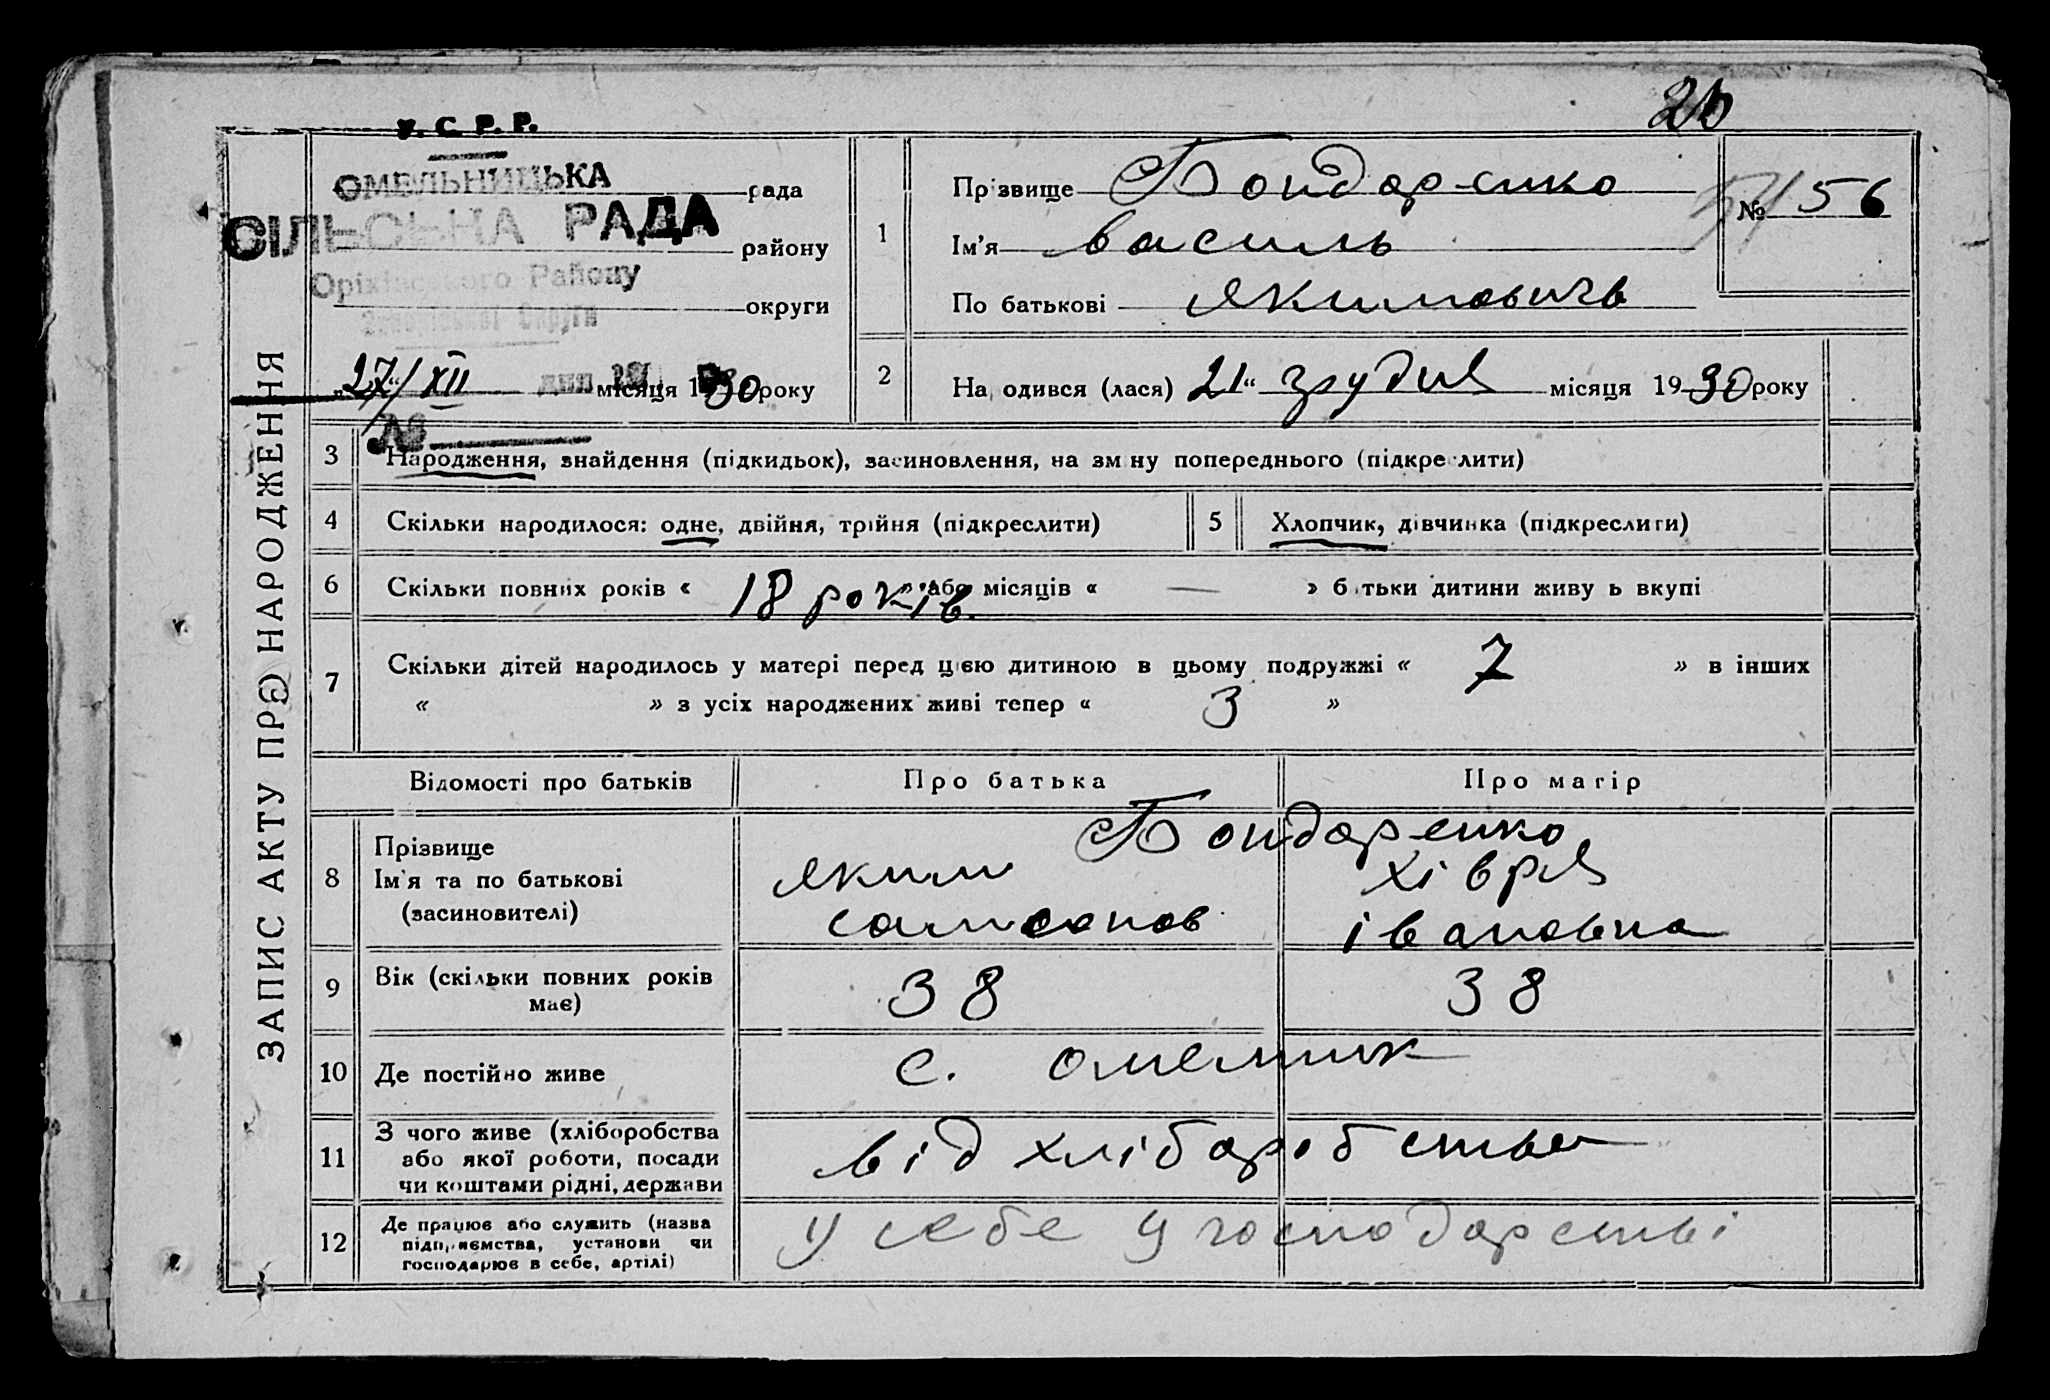 У. С. Р. Р.
ОМЕЛЬНИЦЬКА рада
СІЛЬСЬКА РАДА
району
Оріхівського Району
округи
Запорізької Округи
„27“/XII місяця 1930 року
№
ЗАПИС АКТУ ПРО НАРОДЖЕННЯ
1
Прізвище Бондаренко
Ім’я Василь
По батькові Якимовичь
№ 56
2
Народився (лася) 21“ грудня місяця 1930 року
3 Народження, знайдення (підкидьок), засиновлення, на зміну попереднього (підкреслити)
4 Скільки народилося: одне, двійня, трійня (підкреслити) 5 Хлопчик, дівчинка (підкреслити)
6 Скільки повних років « 18 років » або місяців « — » батьки дитини живуть вкупі
7 Скільки дітей народилось у матері перед цією дитиною в цьому подружжі « 7 » в інших
« » з усіх народжених живі тепер « 3 »
Відомості про батьків Про батька Про матір
8 Прізвище Бондаренко
Ім’я та по батькові Яким Хівря
(засиновителі) Самсонов Івановна
9 Вік (скільки повних років має) 38 38
10 Де постійно живе с. Омельник
11 З чого живе (хліборобства
або якої роботи, посади від хліборобства
чи коштами рідні, держави
12 Де працює або служить (назва
підприємства, установи чи у себе у господарстві
господарює в себе, артілі)